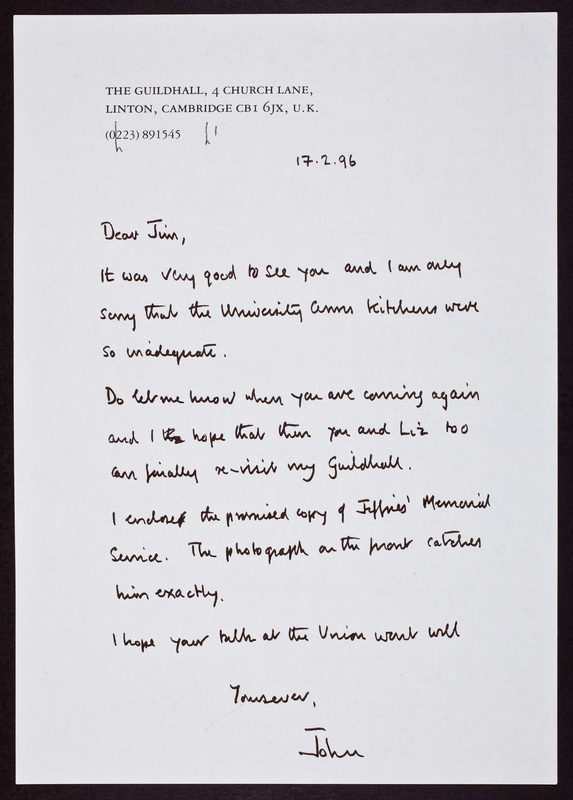 THE GUILDHALL, 4 CHURCH LANE,
LINTON, CAMBRIDGE CB1 6JX, U.K.
(0223) 891545
17.2.96
Dear Jim,
It was very good to see you and I am only
sorry that the University Arms kitchens were
so inadequate.
Do let me know when you are coming again
and I hope that then you and Liz too
can finally re-visit my Guildhall.
I enclose the promised copy of Jeffries' Memorial
Service. The photograph on the front catches
him exactly.
I hope your talk at the Union went well
Yours ever,
John